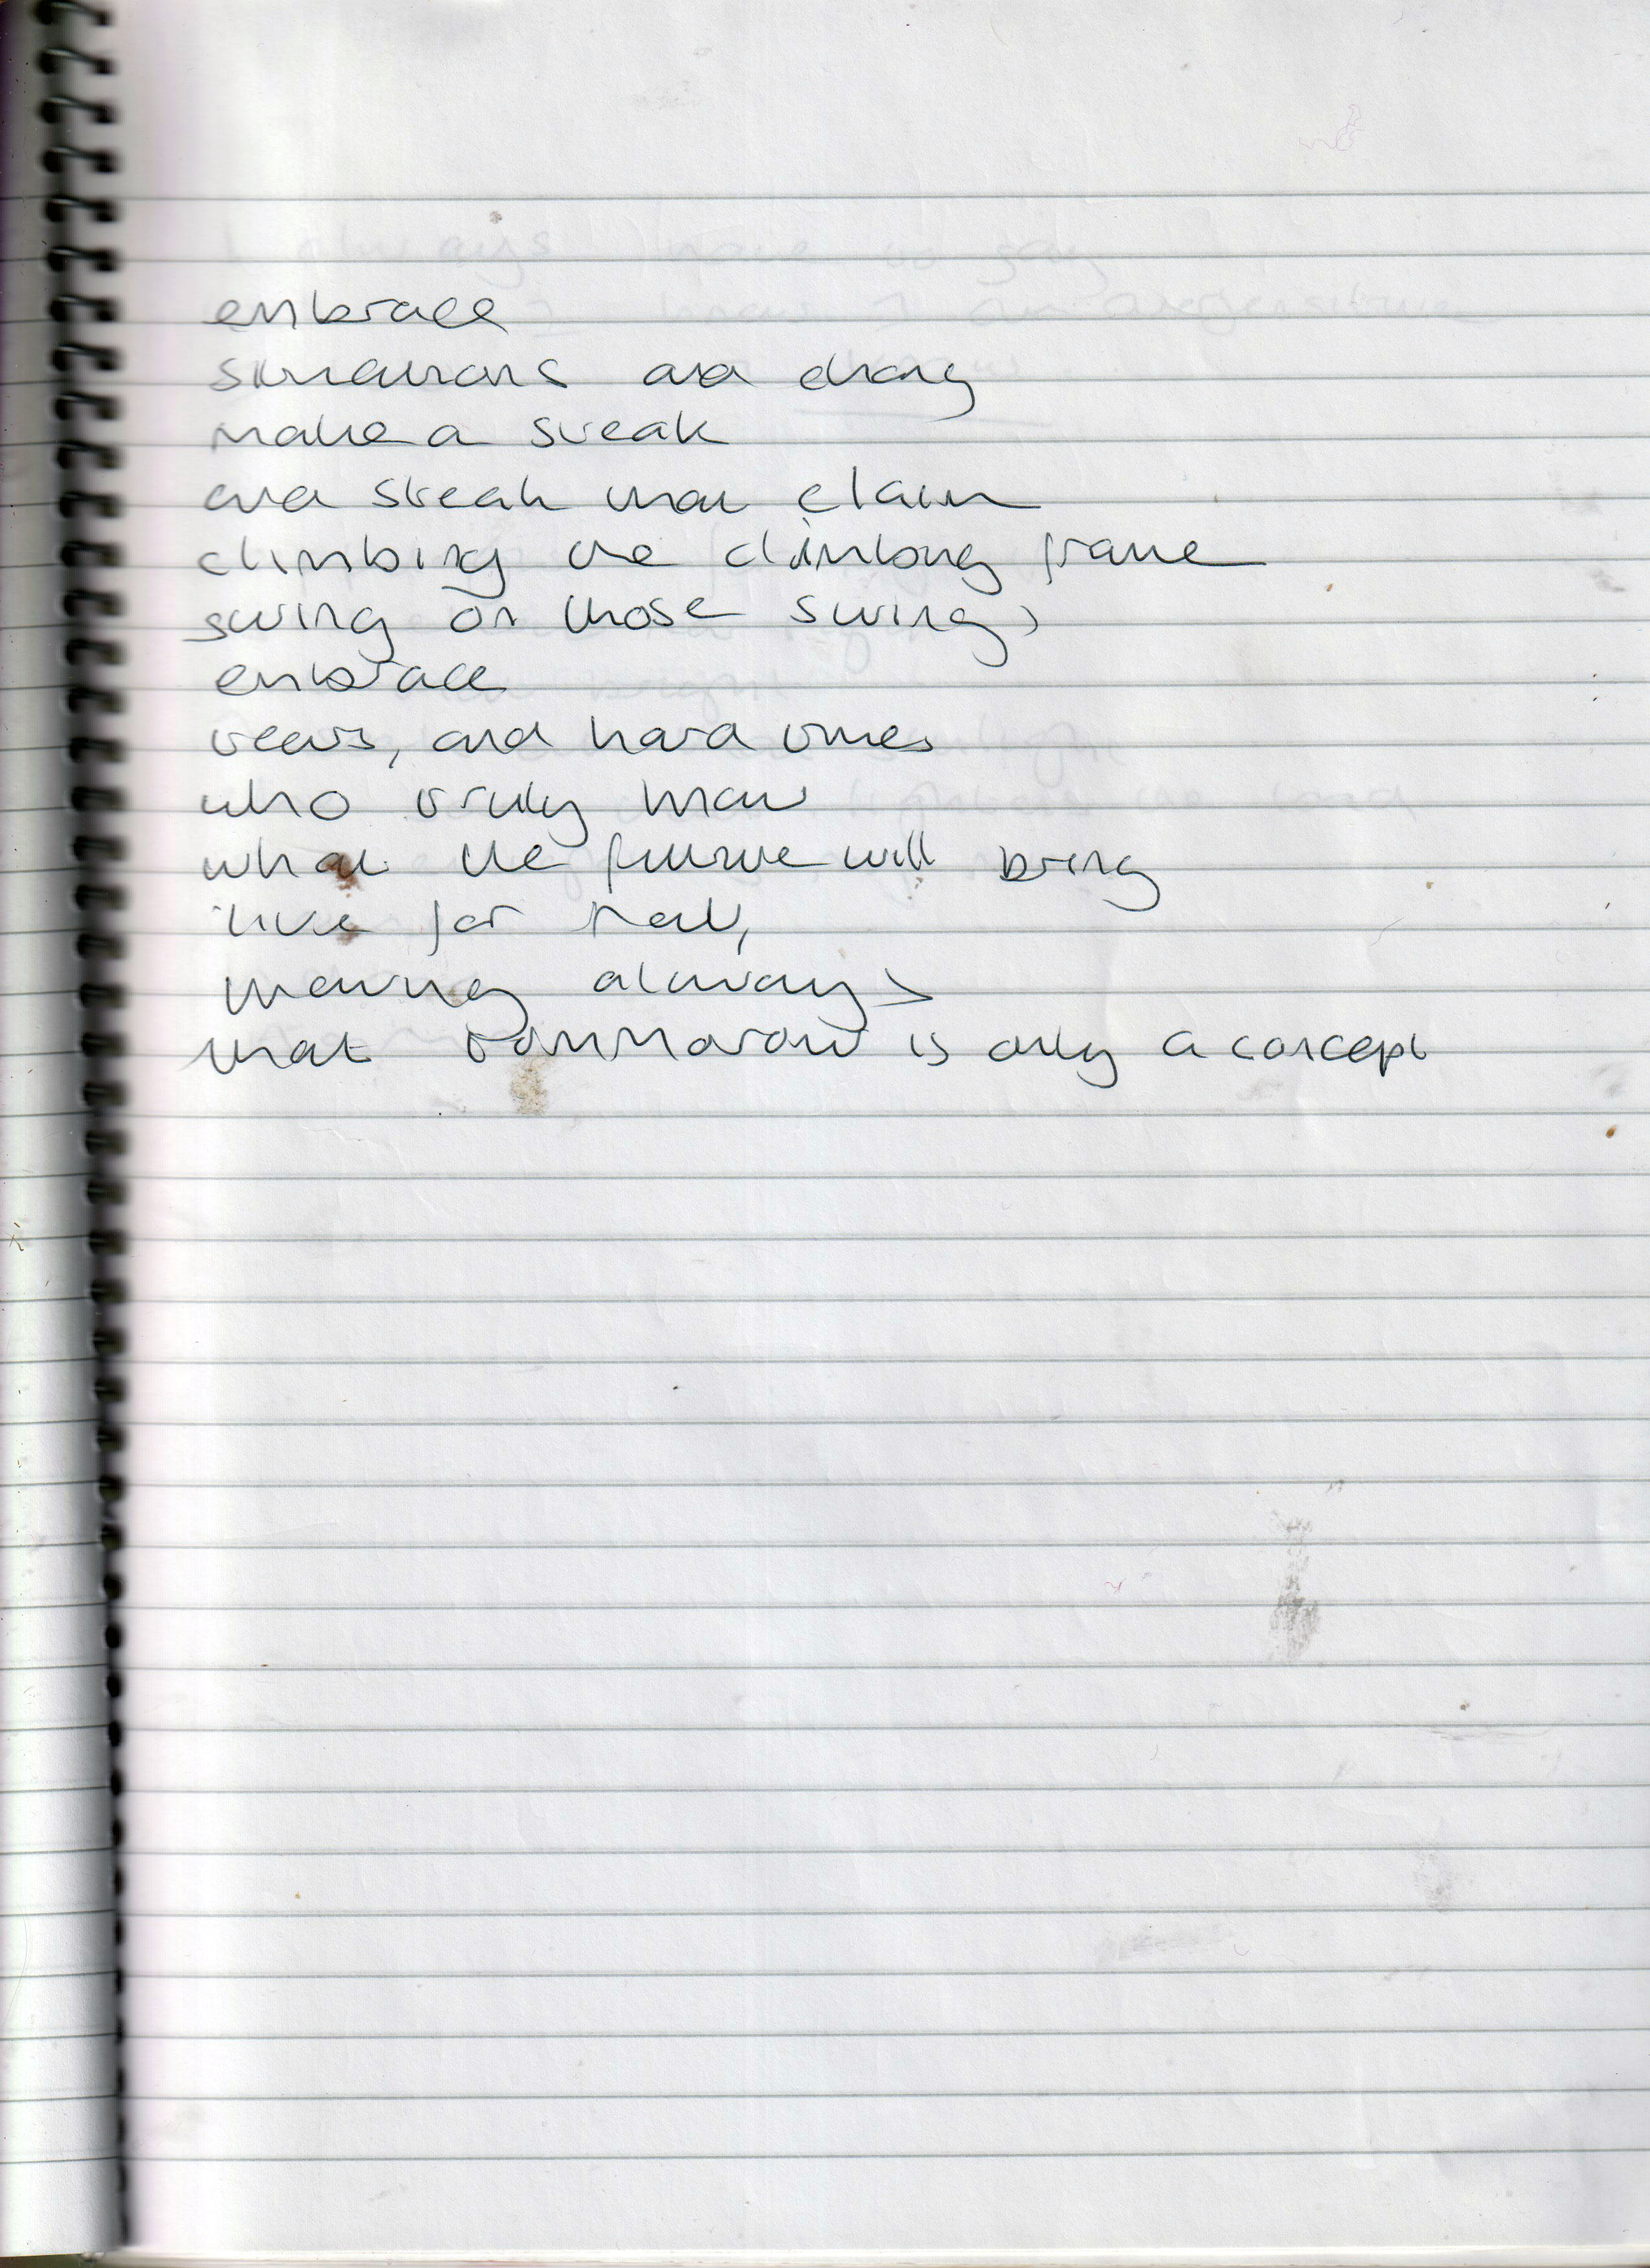 embrace
situations and
make a steak
and steak that claim
climbing the climbing frame
swing on those swings
embrace
tears, and hard times
who truly know
what the future will bring
live for now,
knowing always
that tommorow is only a concept